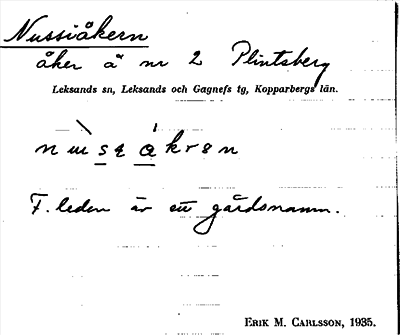 Nussiåkern
åker å nr 2 Plintsberg
Leksands sn, Leksands och Gagnefs tg, Kopparbergs län.
F. leden är ett gårdsnamn.
ERIK M. CARLSSON, 1935.